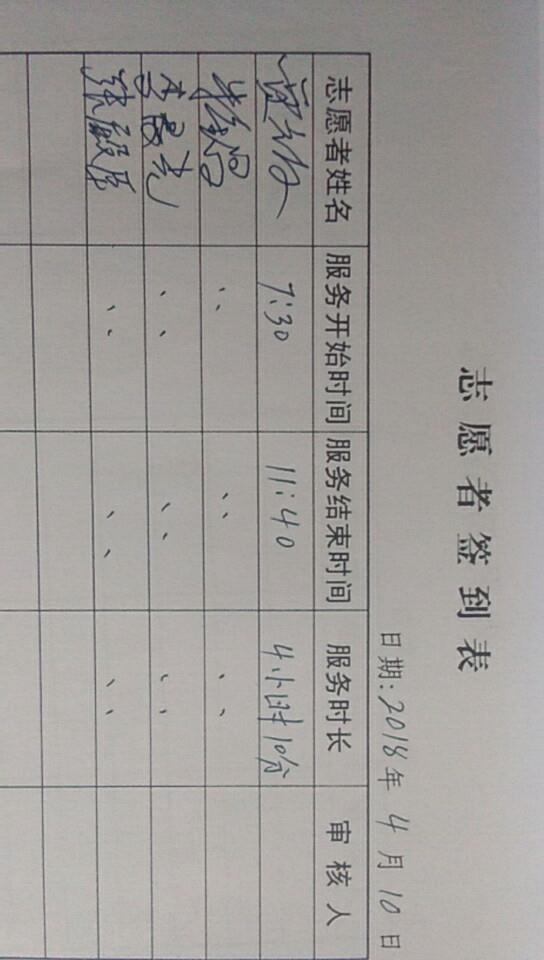 志愿者签到表
日期:2018年4月10日
志愿者姓名 服务开始时间 服务结束时间 服务时长 审核人
7:30 11:40 4小时10分
〃 〃 〃
〃 〃 〃
〃 〃 〃